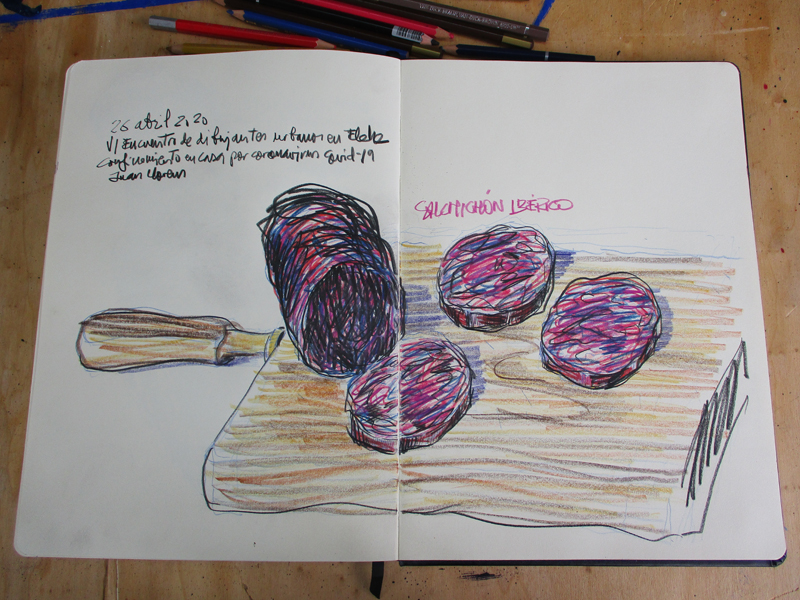 26 abril 2020
VI Encuentro de dibujantes urbanos en Elche
Confinamiento en casa por coronavirus Covid-19
Juan Llorens
SALCHICHÓN IBÉRICO